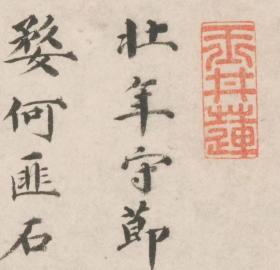 玉井蓮
壯年守節
婺何匪石